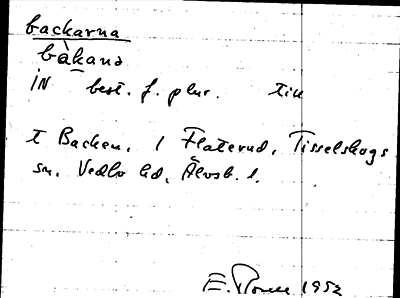 backarna
bàkana
IN best. f. plur. till
t Backen, 1 Flaterud, Tisselskogs
sn, Vedbo hd, Älvsb. l.
E. 1952